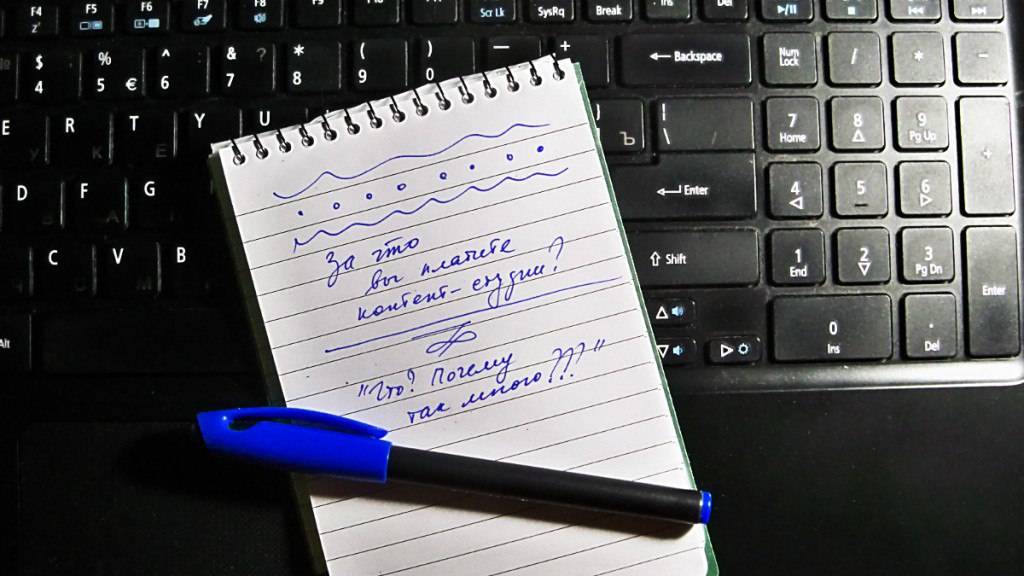 F4 F5 F6 F7 F8 Scr Lk SysRq Break Ins Del
$ % & ? * ( ) — + Backspace Num Lock / * −
4 5 € 6 7 8 9 0
E R T Y U Ъ | \ / 7 Home 8 9 Pg Up +
D F G Enter 4 5 6
C V B Shift 1 End 2 3 Pg Dn Enter
Alt 0 Ins . Del
За что
вы платите
контент-студии?
"Что? Почему
так много???"